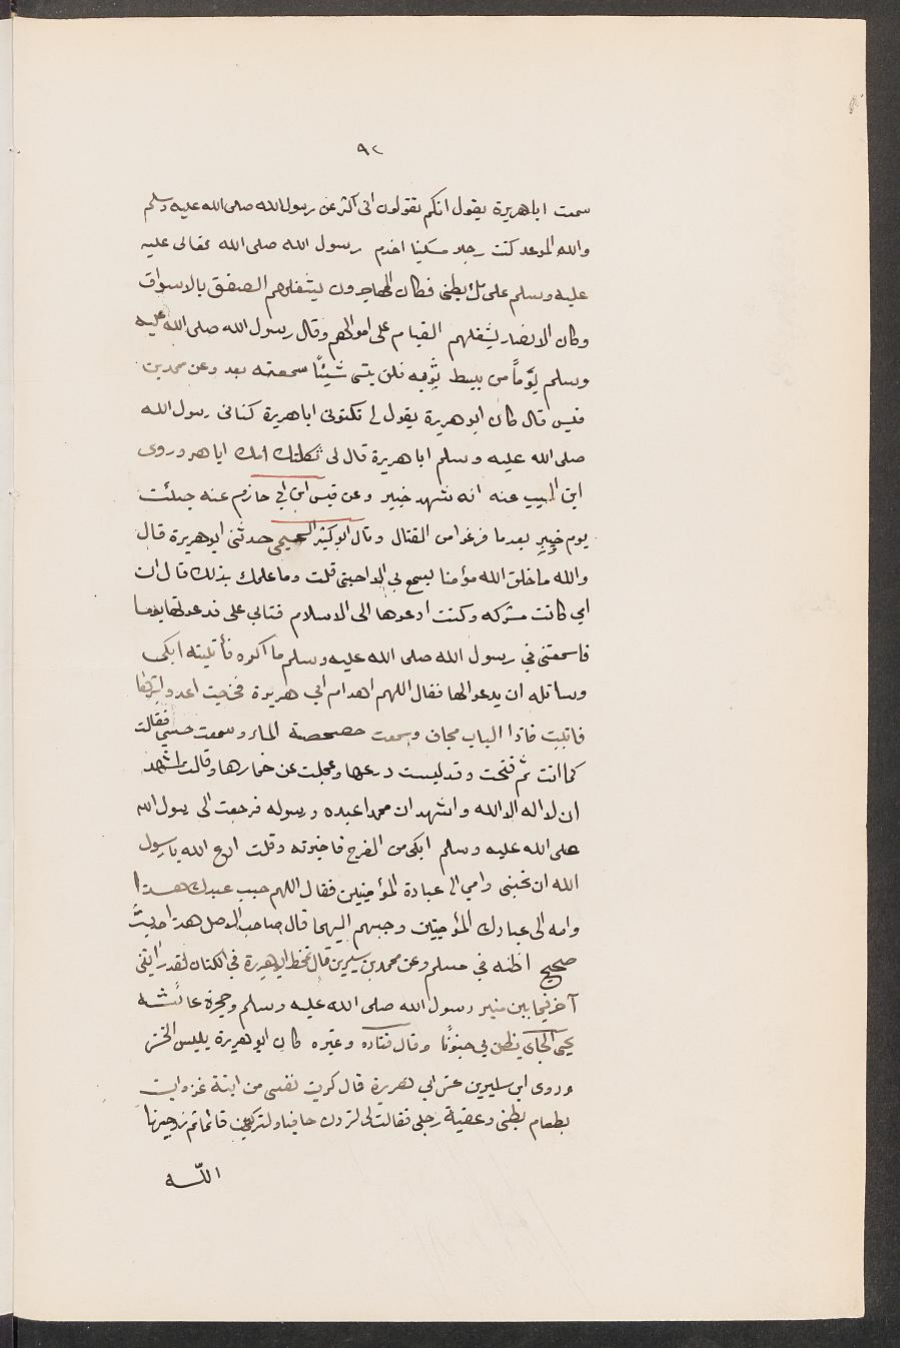 ٩٢
سمعت اباهريرة يقول انكم تقولون انى اكثر عن رسول الله صلى الله عليه وسلم
والله الموعد كنت رجلا مسكينا اخدم رسول الله صلى الله تعالى عليه
عليه وسلم على ملء بطنى فكان المهاجرون يشغلهم الصفق بالاسواق
وكان الانصار يشغلهم القيام على اموالهم وقال رسول الله صلى الله عليه
وسلم يوًماً من يبسط ثوبه فلن ينسى شيئًا سمعته بعد وعن محمد بن
قيس قال كان ابو هريرة يقول لى تكنونى اباهريرة كنانى رسول الله
صلى الله عليه وسلم اباهريرة قال لى ثكلتك امك اباهر وروى
ابن المسيب عنه انه شهد خيبر وعن قيس ابن ابي حازم عنه جئت
يوم خيبر بعدما فرغوا من القتال وقال ابو كثير السحيمى حدثنى ابو هريرة قال
والله ما خلق الله مؤمنا يسمع بي الا احبنى قلت وما علمك بذلك قال ان
امي كانت مشركه وكنت ادعوها الى الاسلام فتابى على فدعوتها يوما
فاسمعتنى في رسول الله صلى الله عليه وسلم ما اكره فأتيته ابكى
وسألته ان يدعو لها فقال اللهم اهد ام ابي هريرة فخرجت اعدو
فاتيت فاذا الباب مجاف وسمعت خضخضة الماء وسمعت حسي فقالت
كما انت ثم فتحت وقد لبست درعها وعجلت عن خمارها وقالت اشهد
ان لا اله الا الله واشهد ان محمدا عبده ورسوله فرجعت الى رسول الله
صلى الله عليه وسلم ابكى من الفرح فاخبرته وقلت ادع الله يا رسول
الله ان يحببنى وامي الى عبادة المؤمنين فقال اللهم حبب عبدك هذا
وامه الى عبادك المؤمنين وحببهم اليهما قال صاحب الاصل هذا حديثٌ
صحيح اظنه في مسلم وعن محمد بن سيرين قال تمخط ابوهريرة في الكتان لقد رايتنى
آخر فيما بين منبر رسول الله صلى الله عليه وسلم وحجرة عائشه
يجى الجاى يظن بى جنونًا وقال قتاده وغيره كان ابو هريرة يلبس الخز
وروى ابن سيرين عن ابي هريرة قال كريت نفسى من ابنة غزوان
بطعام بطنى وعقبة رجلى فقالت لى لتردن حافيا ولتركبن قائما ثم زوجنيها
الله